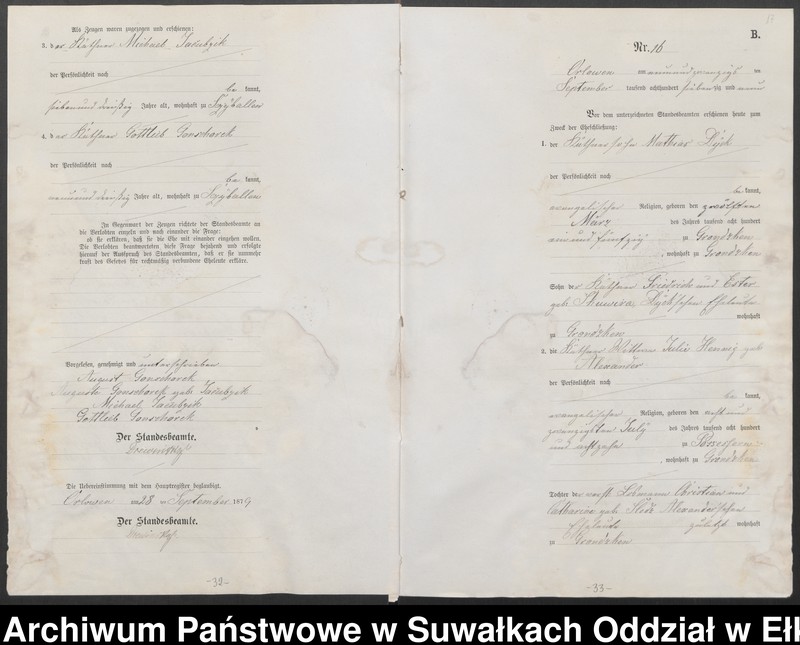 Als Zeugen waren zugezogen und erschienen:
3. der Käthner Michael Jacubzik
der Persönlichkeit nach
be kannt,
sieben und dreißig Jahre alt, wohnhaft zu Szyballen
4. der Käthner Gottlieb Gonschorek
der Persönlichkeit nach
be kannt,
neunund dreißig Jahre alt, wohnhaft zu Szyballen
In Gegenwart der Zeugen richtete der Standesbeamte an
die Verlobten einzeln und nach einander die Frage:
ob sie erklären, daß sie die Ehe mit einander eingehen wollen.
Die Verlobten beantworteten diese Frage bejahend und erfolgte
hierauf der Ausspruch des Standesbeamten, daß er sie nunmehr
kraft des Gesetzes für rechtmäßig verbundene Eheleute erkläre.
Vorgelesen, genehmigt und unterschrieben
August Gonschorek
Auguste Gonschorek geb. Jacubzik
Michael Jacubzik
Gottlieb Gonschorek
Der Standesbeamte.
Die Uebereinstimmung mit dem Hauptregister beglaubigt.
Orlowen am 28 ten September 1879
Der Standesbeamte.
-32-
B.
Nr. 16
Orlowen am neunundzwanzigsten
September tausend achthundert siebenzig und neun
Vor dem unterzeichneten Standesbeamten erschienen heute zum
Zweck der Eheschließung:
1. der Käthnersohn Mathias Dyck
der Persönlichkeit nach
be kannt,
evangelischer Religion, geboren den zwölften
März des Jahres tausend acht hundert
einund fünfzig zu Grondzken
, wohnhaft zu Grondzken
Sohn der Käthner Friedrich und Ester
geb. Dyck'schen Eheleute
wohnhaft
zu Grondzken
2. die Käthner Wittwe Julie Hennig geb.
Alexander
der Persönlichkeit nach
be kannt,
evangelischer Religion, geboren den acht und
zwanzigsten July des Jahres tausend acht hundert
und achtzehn zu
, wohnhaft zu Grondzken
Tochter der Christian und
Catharina geb. Alexander'schen
Eheleute zuletzt wohnhaft
zu Grondzken
-33-
Archiwum Państwowe w Suwałkach Oddział w Ełk